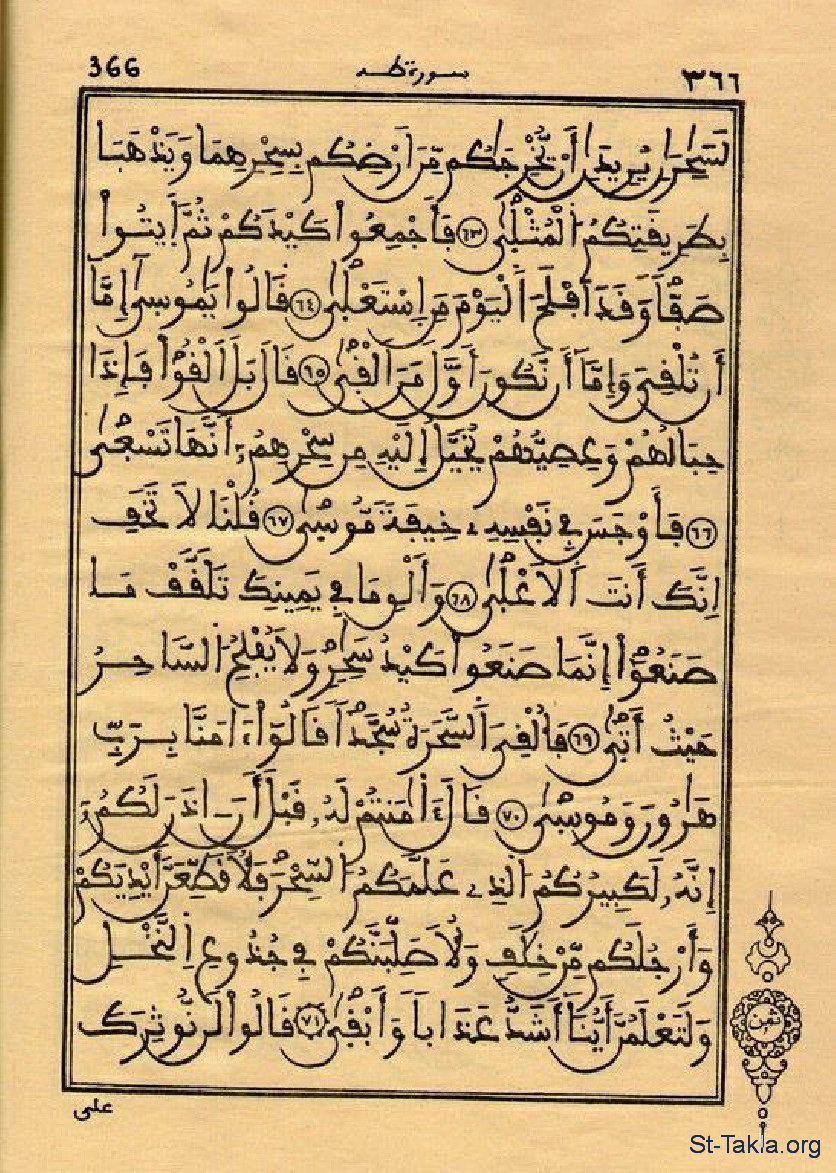 366 سورة طه ٣٦٦
لَسَٰحِرَٰنِ يُرِيدَٰنِ أَنْ يُّخْرِجَٰكُم مِّنَ اَرْضِكُم بِسِحْرِهِمَا وَيَذْهَبَا
بِطَرِيقَتِكُمُ الْمُثْلَىٰ ٦٣ فَأَجْمِعُواْ كَيْدَكُمْ ثُمَّ اَيتُواْ
صَفّاً وَقَدَ اَفْلَحَ اَلْيَوْمَ مَنِ اِسْتَعْلَىٰ ٦٤ قَالُواْ يَٰمُوسَىٰ إِمَّا
أَن تُلْقِيَ وَإِمَّا أَن نَّكُونَ أَوَّلَ مَنَ اَلْقَىٰ ٦٥ قَالَ بَلَ اَلْقُواْ فَإِذَا
حِبَالُهُمْ وَعِصِيُّهُمْ يُخَيَّلُ إِلَيْهِ مِن سِحْرِهِمُۥ أَنَّهَا تَسْعَىٰ
٦٦ فَأَوْجَسَ فِي نَفْسِهِۦ خِيفَةً مُّوسَىٰ ٦٧ قُلْنَا لَا تَخَفِ
اِنَّكَ أَنتَ اَلَاعْلَىٰ ٦٨ وَأَلْقِ مَا فِي يَمِينِكَ تَلَقَّفْ مَا
صَنَعُواْ إِنَّمَا صَنَعُواْ كَيْدُ سَٰحِرٍ وَلَا يُفْلِحُ السَّاحِرُ
حَيْثُ أَتَىٰ ٦٩ فَأُلْقِيَ اَلسَّحَرَةُ سُجَّداً قَالُواْ ءَامَنَّا بِرَبِّ
هَٰرُونَ وَمُوسَىٰ ٧٠ قَالَ ءَآمَنتُمْ لَهُۥ قَبْلَ أَنَ ـ اذَنَ لَكُمُۥ
إِنَّهُۥ لَكَبِيرُكُمُ الَّذِي عَلَّمَكُمُ السِّحْرَ فَلَأُقَطِّعَنَّ أَيْدِيَكُمْ
وَأَرْجُلَكُم مِّنْ خِلَٰفٍ وَلَأُصَلِّبَنَّكُمْ فِي جُذُوعِ اِلنَّخْلِ
وَلَتَعْلَمُنَّ أَيُّنَا أَشَدُّ عَذَاباً وَأَبْقَىٰ ٧١ قَالُواْ لَن نُّوثِرَكَ
على
ثمن
St-Takla.org